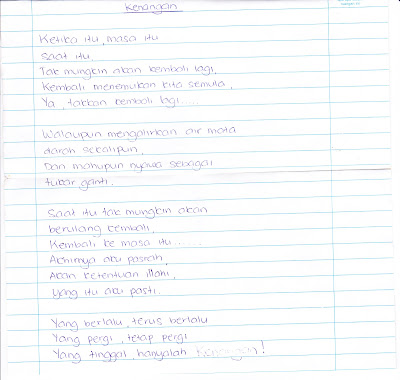 Kenangan
Ketika itu, masa itu
Saat itu,
Tak mungkin akan kembali lagi,
Kembali menemukan kita semula,
Ya, takkan kembali lagi.....
Walaupun mengalirkan air mata
darah sekalipun,
Dan mahupun nyawa sebagai
tukar ganti.
Saat itu tak mungkin akan
berulang kembali,
Kembali ke masa itu......
Akhirnya aku pasrah,
Akan ketentuan illahi,
Yang itu aku pasti.
Yang berlalu, terus berlalu
Yang pergi, tetap pergi
Yang tinggal, hanyalah kenangan!